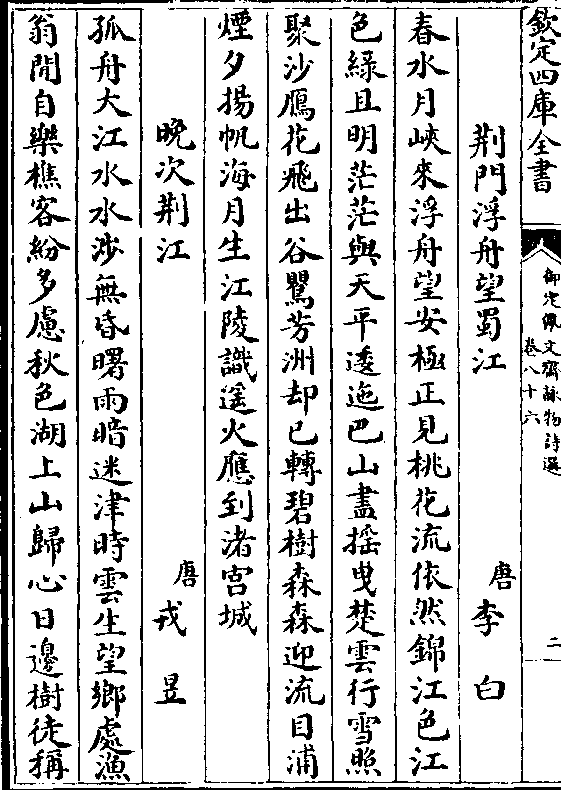 欽定四庫全書
御定佩文齋詠物詩選
卷八十六
二
荆門浮舟望蜀江
唐李白
春水月峽來浮舟望安極正見桃花流依然錦江色江
色綠且明茫茫與天平逶迤巴山盡搖曳楚雲行雪照
聚沙鴈花飛出谷鸎芳洲却已轉碧樹森森迎流目浦
煙夕揚帆海月生江陵識遥火應到渚宫城
晚次荆江
唐戎昱
孤舟大江水水涉無昏曙雨暗迷津時雲生望鄉處漁
翁閒自樂樵客紛多慮秋色湖上山歸心日邊樹徒稱